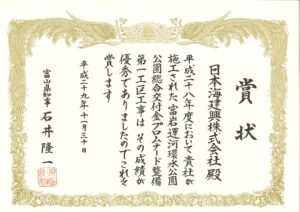 賞状
日本海建興株式会社 殿
平成二十八年度において貴社が
施工された富岩運河環水公園
公園総合交付金プロムナード整備
第一工区工事は その成績が
優秀でありましたのでこれを
賞します
平成二十九年十一月三十日
富山県知事 石井隆一